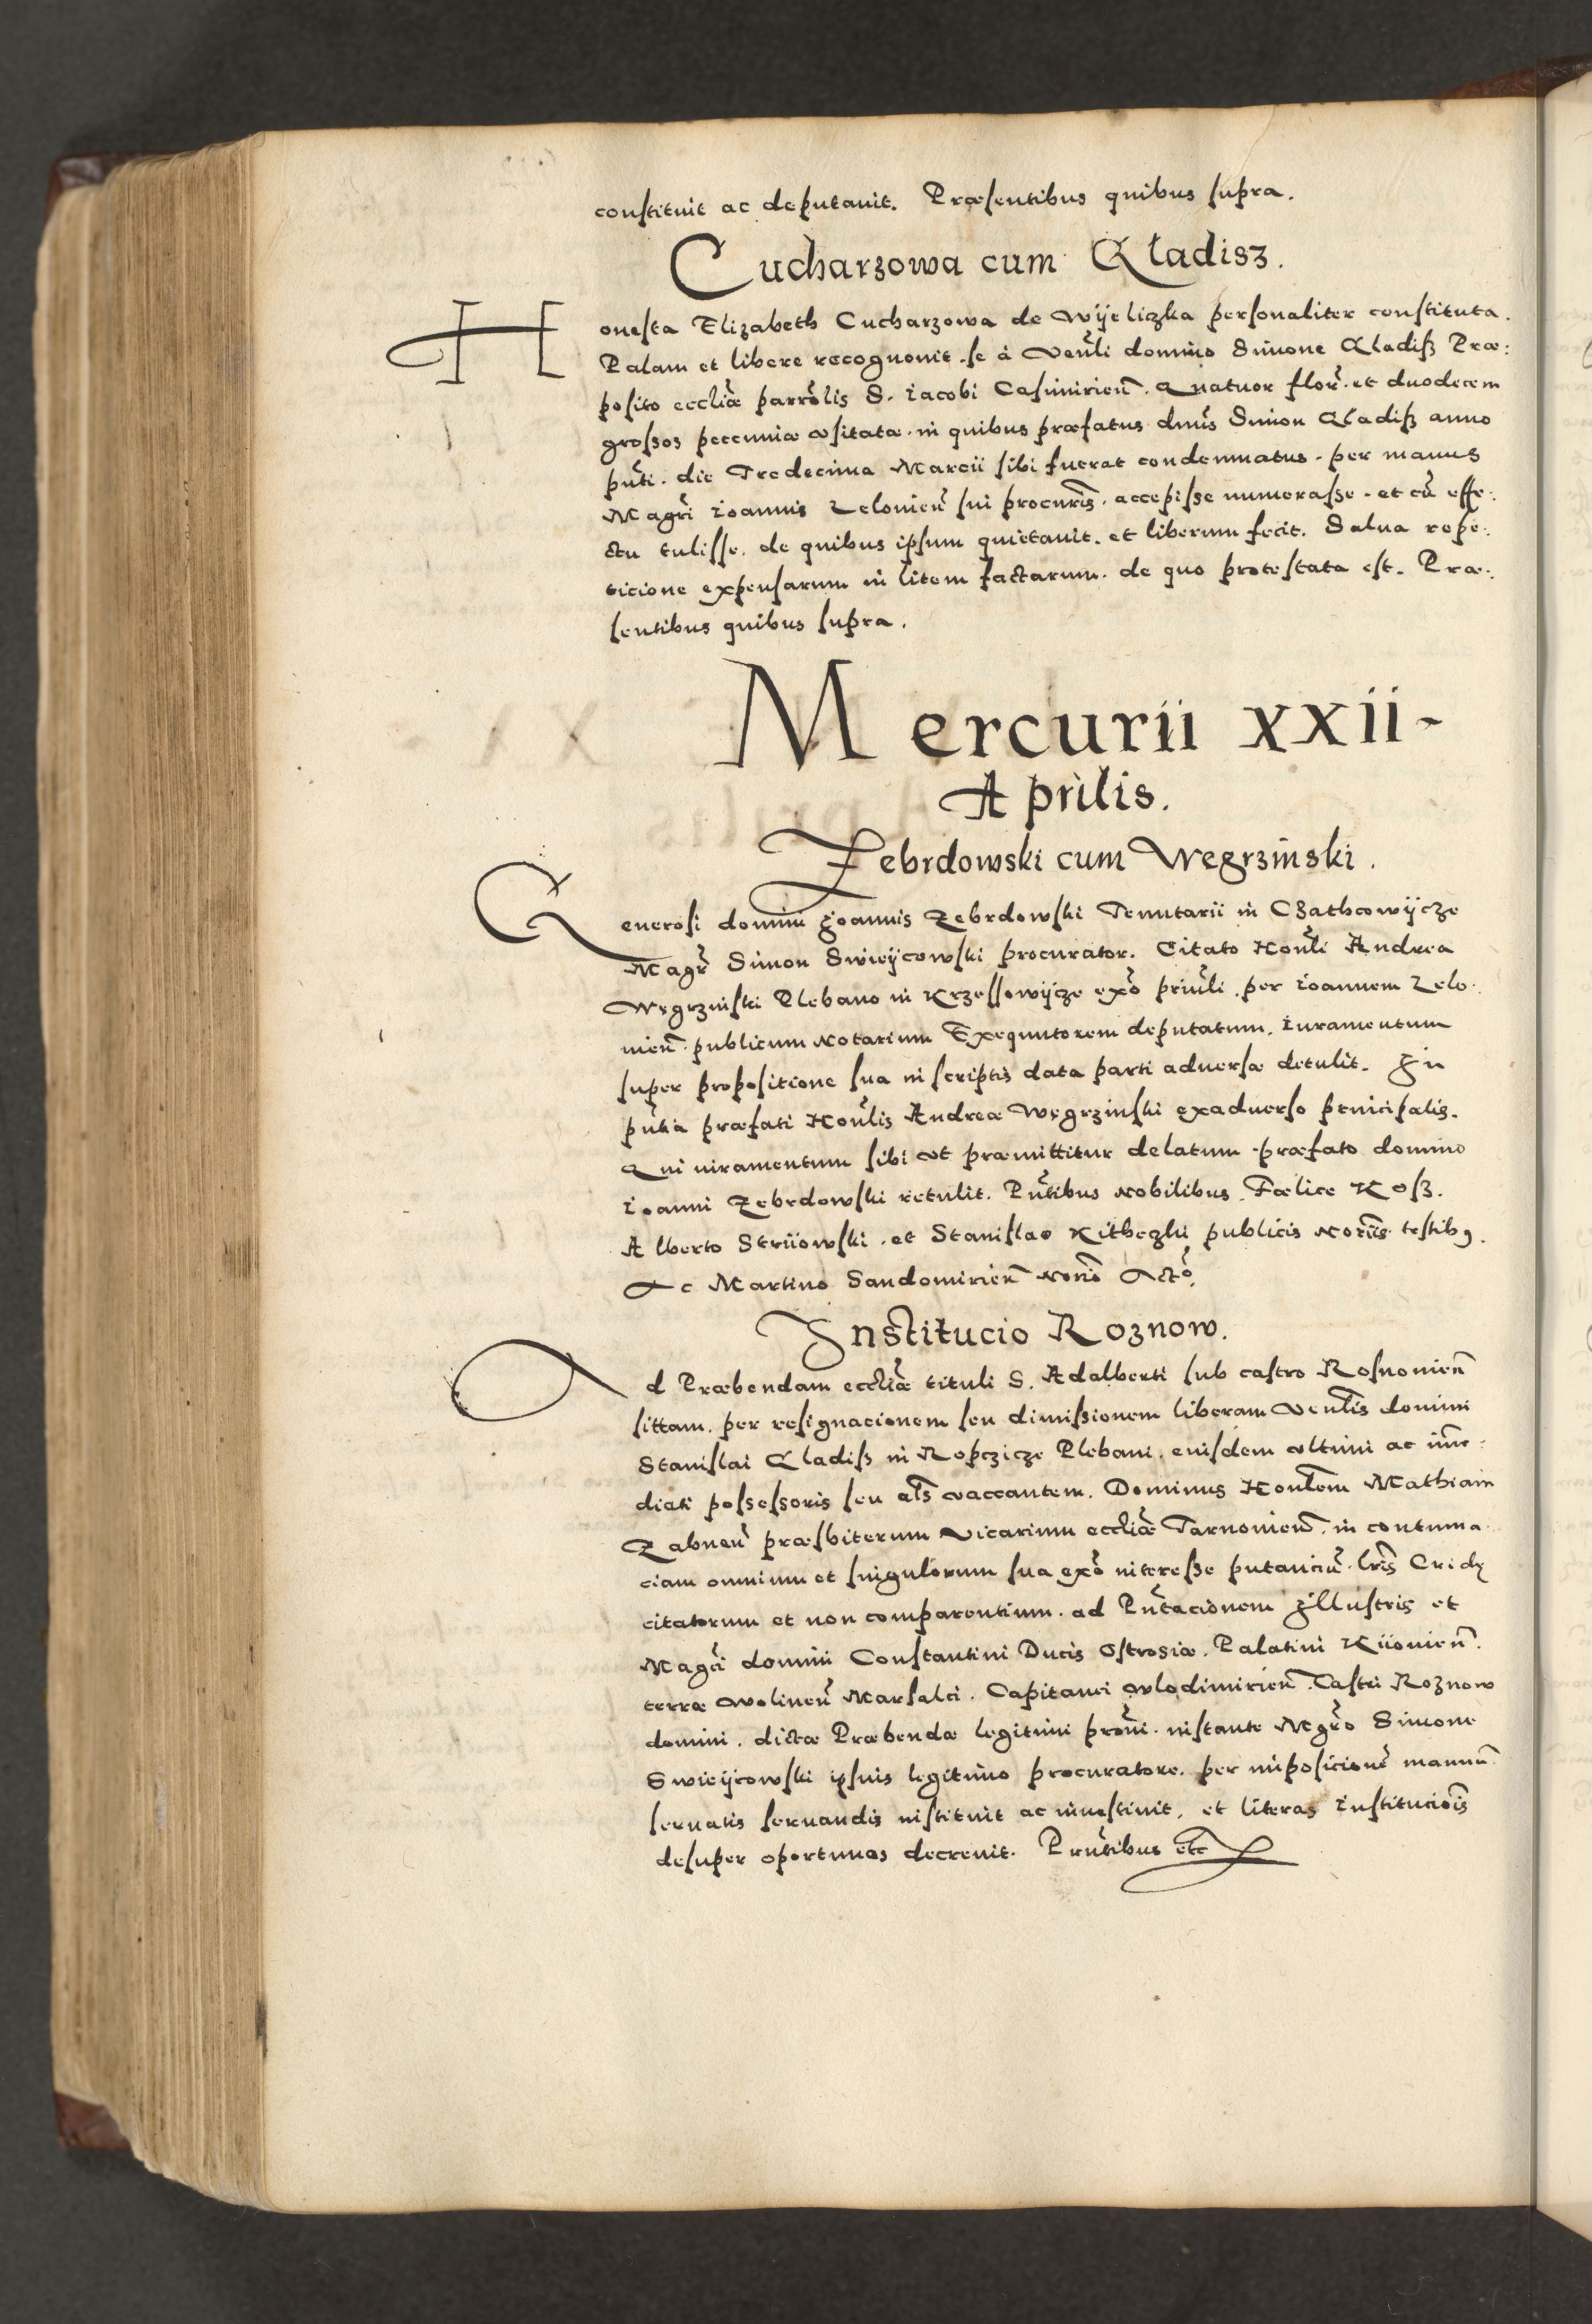 constituit ac deputauit. Præsentibus quibus supra.
Cucharzowa cum Gladisz.
Honesta Elizabeth Cucharzowa de Wijeliczka personaliter constituta.
Palam et libere recognouit. se à Venłi domino Simone Gladiß Præ:
posito eccliæ parrolis S. Iacobi Casimirien̄. Quatuor flor̄. et duodecem
grossos pecuniæ vsitatæ. in quibus præfatus dnus Simon Gladiß anno
pn̄ti. die Tredecima Marcii sibi fuerat condemnatus. per manus
Magr̄i Ioannis Zelonien̄ sui procur̄is. accepisse numerasse. et cū effe:
ctu tulisse. de quibus ipsum quietauit. et liberum fecit. Salua repe:
ticione expensarum in litem factarum. de quo protestata est. Præ:
sentibus quibus supra.
Mercurii xxii-
Aprilis.
Zebrdowski cum Wegrzinski.
Generosi domini Ioannis Zebrdowski Tenutarii in Czathcowijcze
Magr̄ Simon Swieijcowski procurator. Citato Honłi Andrea
Węgrzinski Plebano in Krzessowijcze exō priūli. per Ioannem Zelo:
nien̄. publicum Notarium Exequutorem deputatum. Iuramentum
super propositione sua in scriptis data parti aduersæ detulit. In
pn̄tia præfati Honłis Andreæ Węgrzinski exaduerso principalis.
Qui iuramentum sibi vt præmittitur delatum. præfato domino
Ioanni Zebrdowski retulit. Pn̄tibus Nobilibus. Fœlice Koß.
Alberto Striiowski. et Stanislao Kitheczki publicis Noriis testibꝰ.
Ac Martino Sandomirien̄ Noriō Actō.
Institucio Roznow.
Ad Præbendam eccliæ tituli S. Adalberti sub castro Rosnonien̄
sittam. per resignacionem seu dimissionem liberam Venłis domini
Stanislai Gladiß in Ropczicze Plebani. eiusdem vltimi ac im̄e:
diati possessoris seu als̄ vaccantem. Dominus Honłem Mathiam
Zabnen̄ præsbiterum Vicarium eccliæ Tarnouien̄. in contuma:
ciam omnium et singulorum sua exō interesse putanciū. lr̄is Cridę
citatorum et non comparentium. ad Pn̄tacionem Illustris et
Magci domini Constantini Ducis Ostrosiæ. Palatini Kiiouien̄.
terræ Wolinen̄ Marsalci. Capitanei Wlodimirien̄. Castri Roznow
domini. dictæ Præbendæ legitimi pr̄oni. instante Mgr̄o Simone
Swieijcowski ipsius legitimo procuratore. per imposicionē manuū
seruatis seruandis instituit ac inuestiuit. et literas institucio͞is
desuper oportunas decreuit. Prn̄tibus etc̄